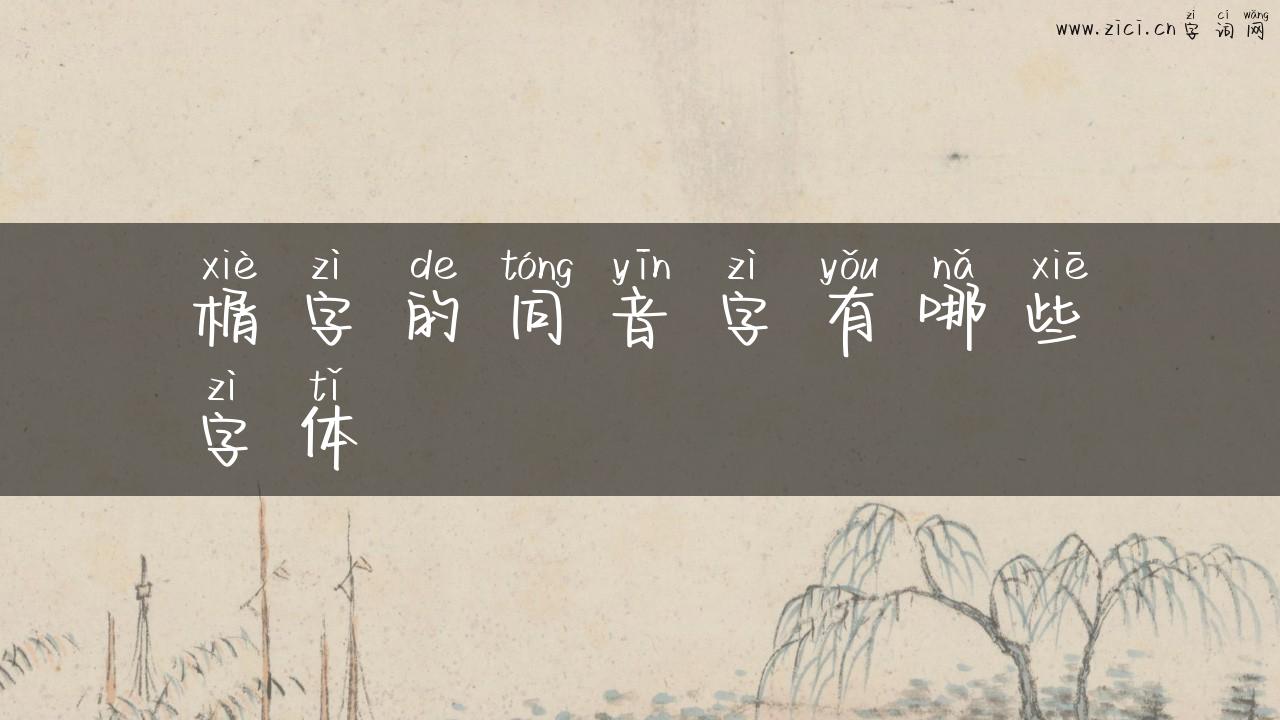 zì cí wǎng
www.zici.cn 字词网
xiè zì de tóng yīn zì yǒu nǎ xiē
榍字的同音字有哪些
zì tǐ
字体